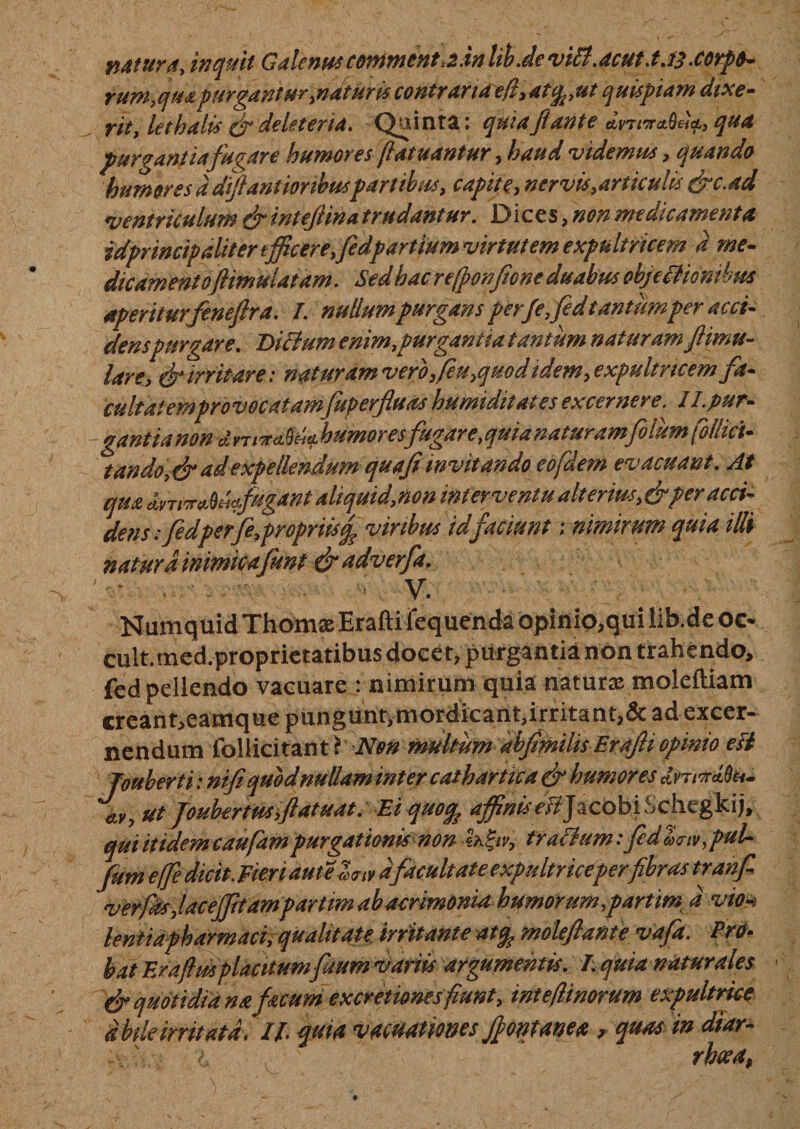 natura, inquit Galenus comment.2.in lib.de vict.acut.t.13.corpo-
rum,quæ purgantur,naturis contraria est, atq;,ut quispiam dixe-
rit, lethalis & deleteria. Quinta: quia stante ἀντιπαθείᾳ, qua
purgantia fugare humores statuantur, haud videmus, quando
humores à distantioribus partibus, capite, nervis, articulis &c.ad
ventriculum & intestina trudantur. Dices, non medicamenta
id principaliter efficere, sed partium virtutem expultricem à me-
dicamento stimulatam. Sed hac responsione duabus objectionibus
aperitur fenestra. I. nullum purgans per se, sed tantùm per acci-
dens purgare. Dictum enim,purgantia tantùm naturam stimu-
lare, & irritare: naturam verò, seu,quod idem, expultricem fa-
cultatem provocatam superfluas humiditates excernere. II.pur-
gantia non ἀντιπαθείᾳ humores fugare,quia naturam solùm sollici-
tando,& ad expellendum quasi invitando eosdem evacuant. At
quæ ἀντιπαθείᾳ fugant aliquid,non interventu alterius,& per acci-
dens: sed per se,propriisq; viribus id faciunt: nimirum quia illi
naturâ inimica sunt & adversa.
V.
Numquid Thomæ Erasti sequenda opinio,qui lib.de oc-
cult.med.proprietatibus docet, purgantia non trahendo,
sed pellendo vacuare : nimirum quia naturæ molestiam
creant,eamque pungunt,mordicant,irritant,& ad excer-
nendum sollicitant? Non multùm absimilis Erasti opinio est
Jouberti: nisi quòd nullam inter cathartica & humores ἀντιπάθει-
αν, ut Joubertus, statuat. Ei quoq; affinis est Jacobi Schegkij,
qui itidem causam purgationis non ἕλξιν, tractum: sed ὦσιν, pul-
sum esse dicit. Fieri autē ὦσιν à facultate expultrice per fibras trans-
versas, lacessitam partim ab acrimonia humorum,partim à vio-
lentia pharmaci, qualitate irritante atq; molestante vasa. Pro-
bat Erastus placitum suum variis argumentis. I. quia naturales
& quotidianæ fæcum excretiones fiunt, intestinorum expultrice
à bile irritatâ. II. quia vacuationes spontaneæ, quas in diar-
rhœa,